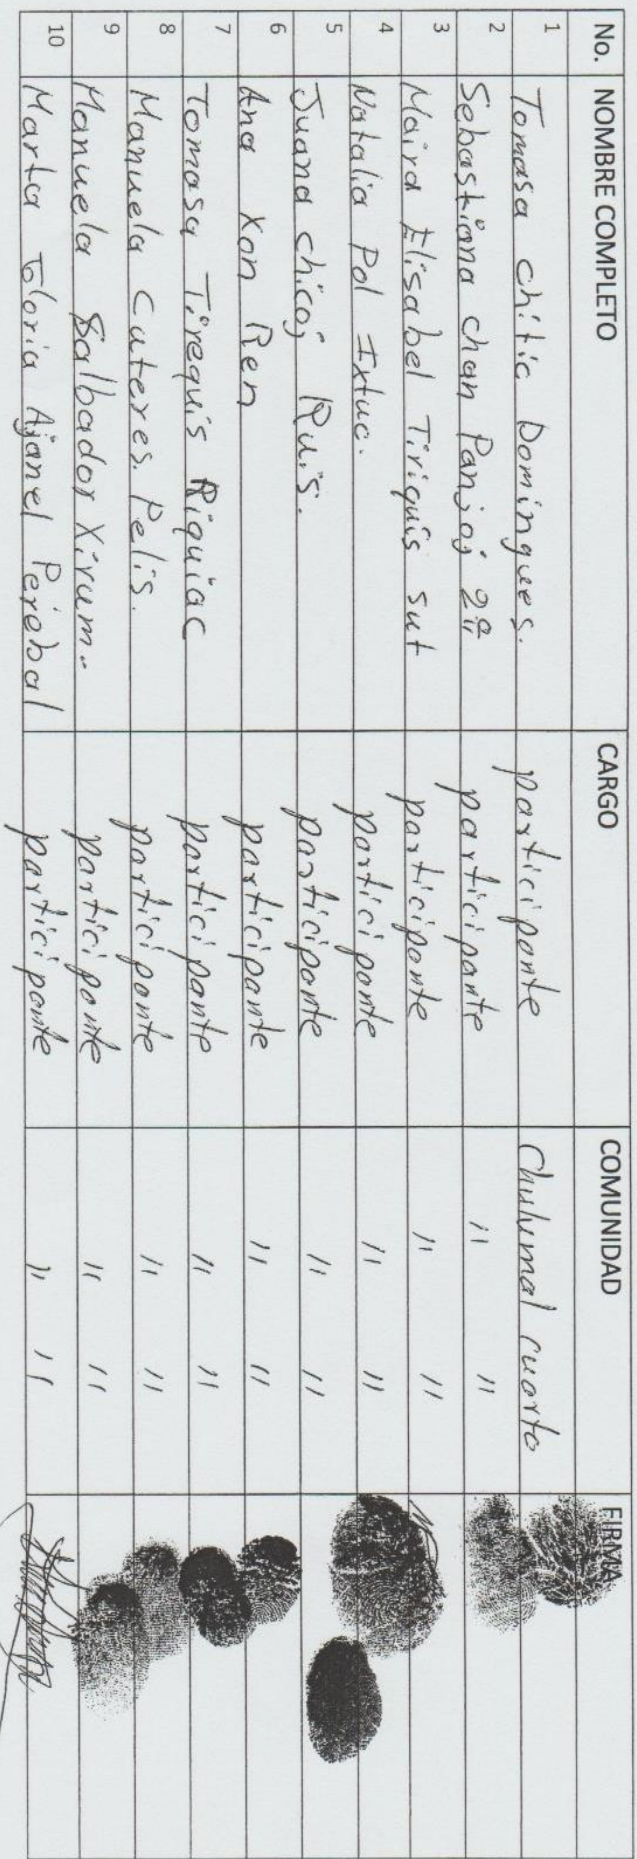 No. NOMBRE COMPLETO CARGO COMUNIDAD FIRMA
1 Tomasa chitic Domingues. participante Chulumal cuarto
2 Sebastiana chan Panjoj 2ª participante " "
3 Maira Elisabel Tiriquis sut participante " "
4 Natalia Pol Ixtuc. participante " "
5 Juana chicoj Ruis. participante " "
6 Ana Xon Ren participante " "
7 Tomasa Tirequis Riquiac participante " "
8 Manuela Cuteres. Pelis. participante " "
9 Manuela Salbador Xirum. participante " "
10 Marta Gloria Ajanel Perebal participante " "